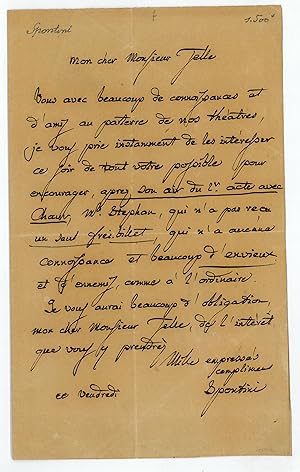 Spontini
1.500
Mon cher Monsieur Telle
Vous avec beaucoup de connoissances et
d'amis au paterre de nos théâtres,
je vous prie instanment de les intéresser
ce soir de tout votre possible pour
encourager, après son air du 2r. acte avec
Chœur, Mr. Stephan, qui n'a pas reçu
un seul freibillet, qui n'a aucune
connoissance et beaucoup d'envieux
et d'ennemis, comme à l'ordinaire.
Je vous aurai beaucoup d'obligation,
mon cher Monsieur Telle, de l'intérêt
que vous y prendrés
Mille empressés
complimens
Spontini
ce vendredi